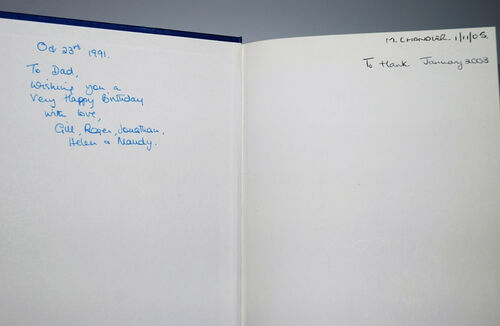 Oct 23rd 1991.
To Dad,
Wishing you a
Very Happy Birthday
with love,
Gill, Roger, Jonathan,
Helen & Mandy.
M. CHANDLER. 1/11/05.
To Hank January 2003